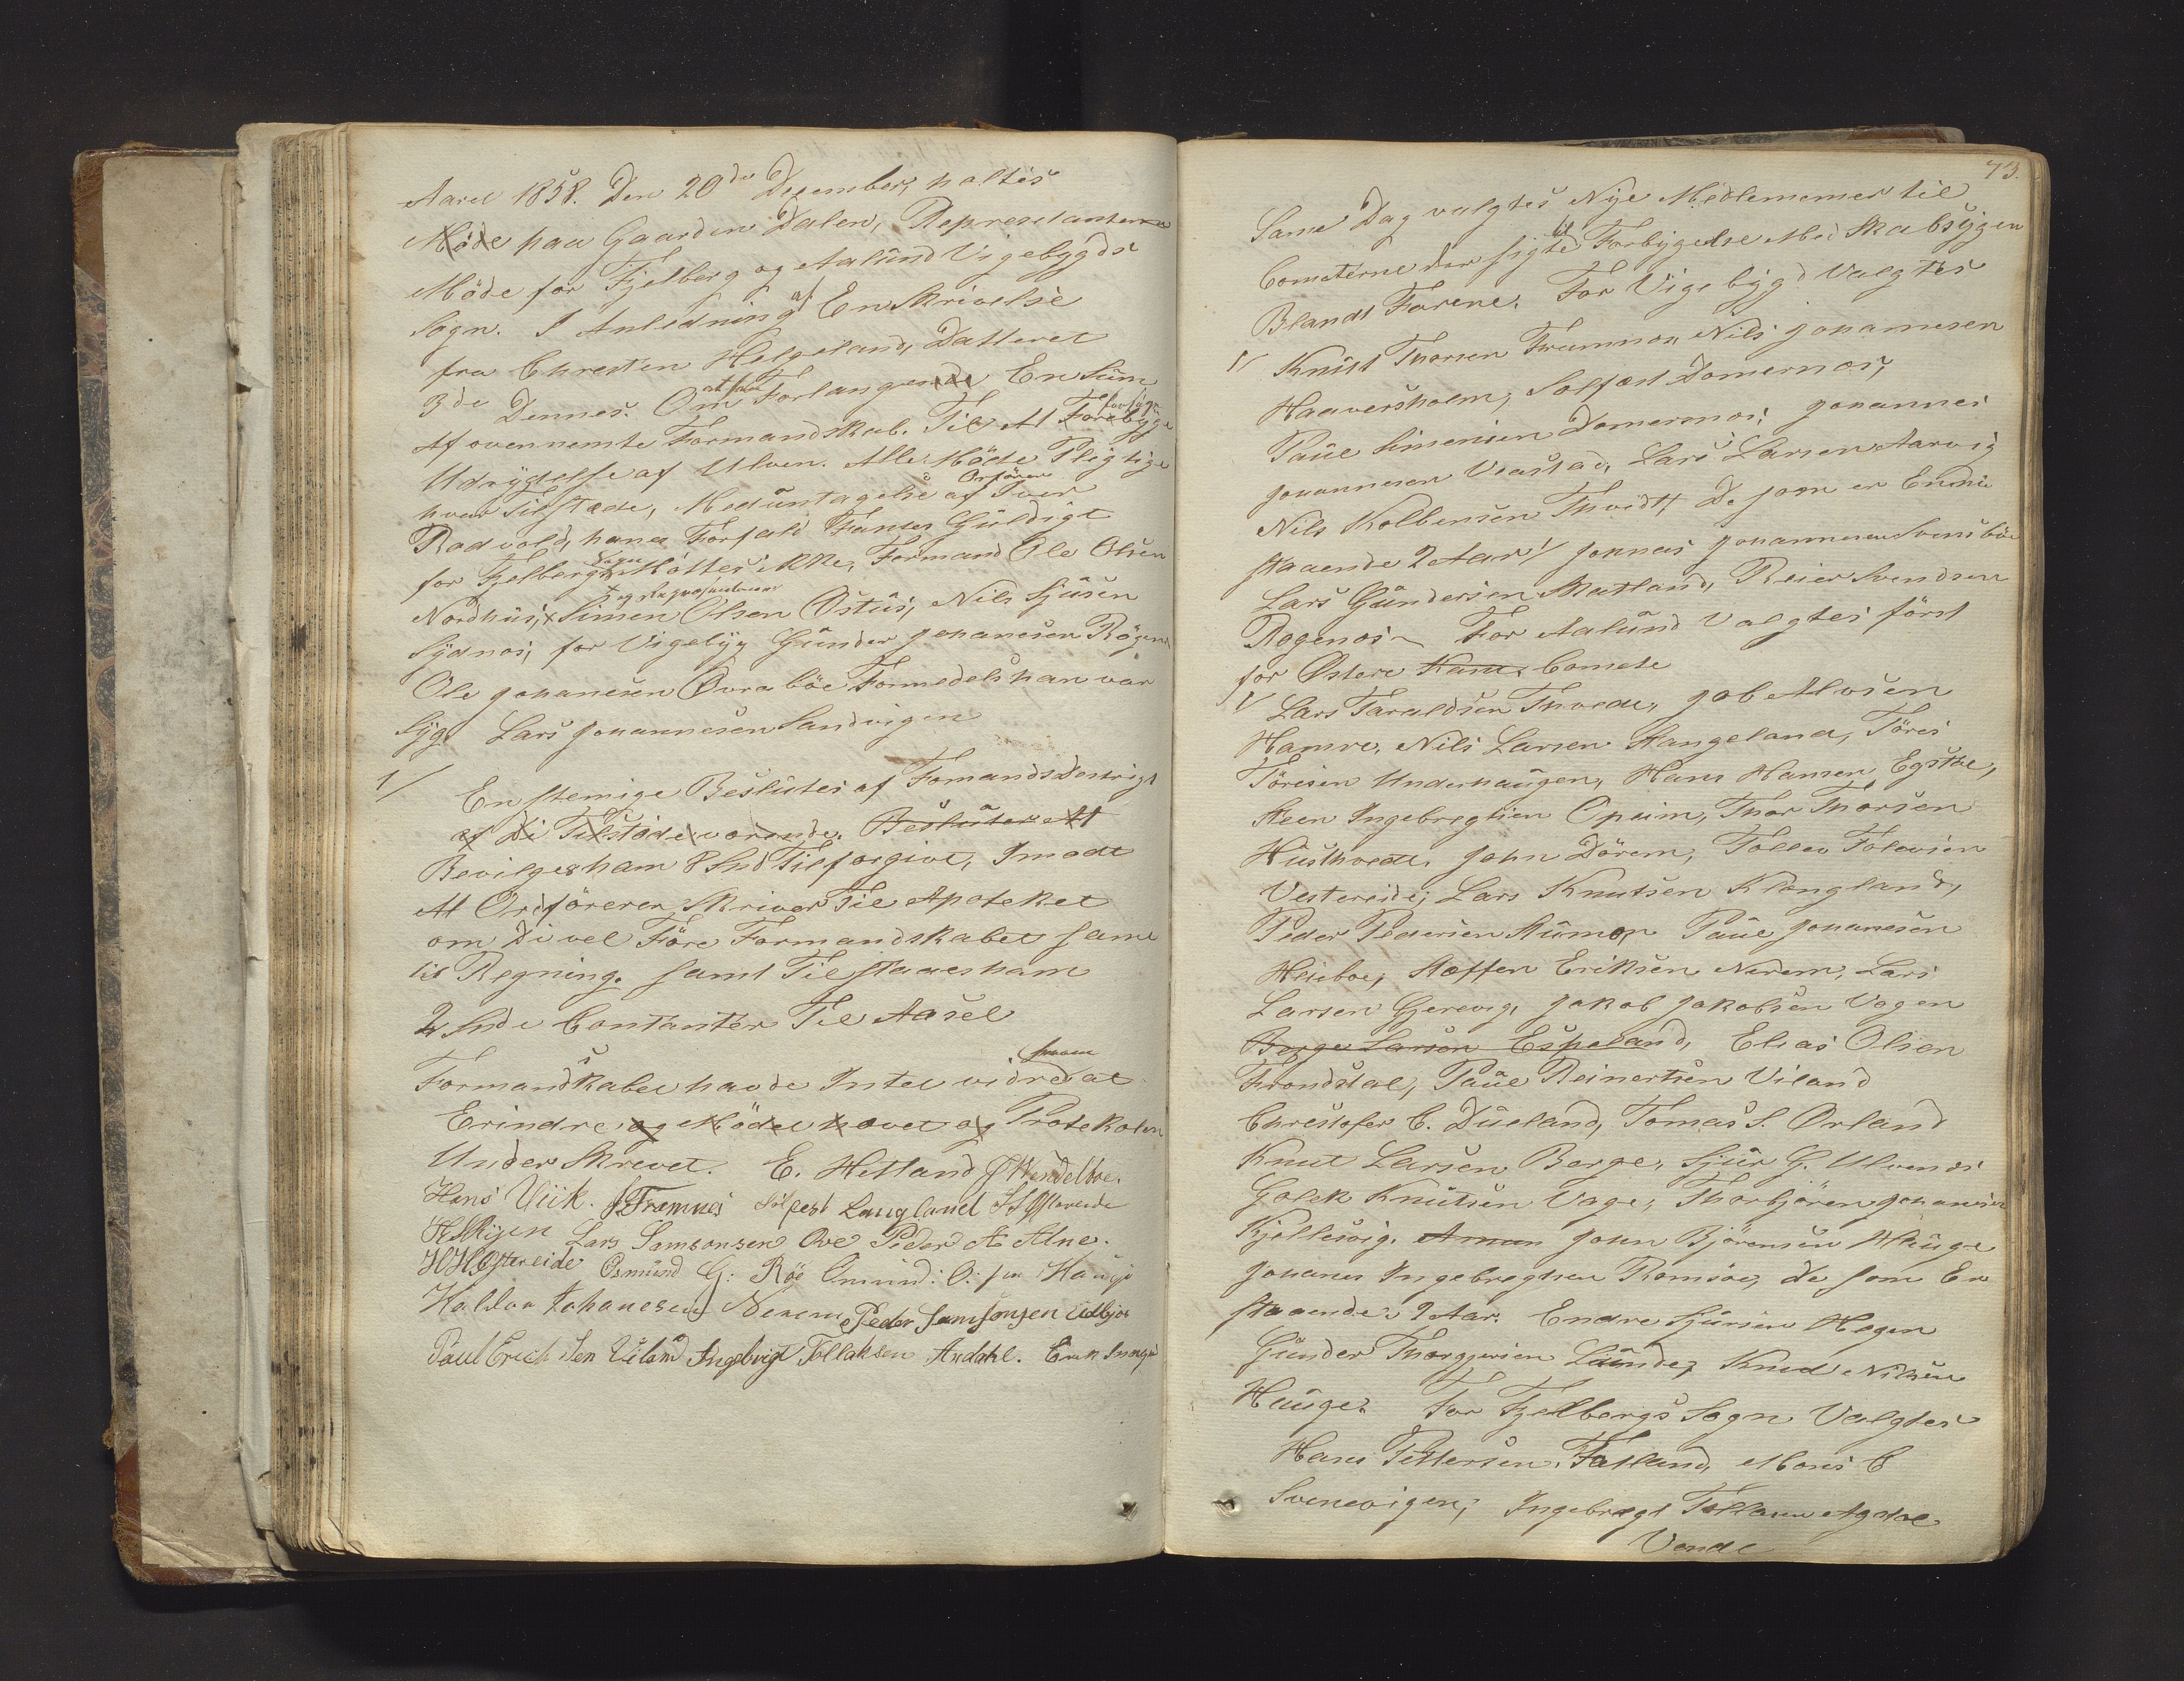 Aaret 1858. Den 20de Desember, holtes
Möde paa Gaarden Dalen, Represetanterne
Möde for Fjelberg og Aalund Vigebygds
Sogn. I Anledning af En Skrivelse
fra Chresten Helgeland, Datteret
3de Dennes. Om at faa Forlangende En Sum
Af ovennemte Formandskab. Til At forsöge Forebyge
Udrydelse af Ulven. Alle Möde Pligtige
hvar Tilstæde, Meduntagelse af Orfören Iver
Radvold, hanes Forfald Fantes Guldigt
for Fjelberg Sogn Möttes ikke, Formand Ole Olsen
Nordhus, og Representanterne Simen Olsen Östus, Nils Sjusen
Sydnes, for Vigebyg Gunder Johanesen Rögen
Ole Johanesen Övraböe Formedels han var
Syg Lars Johannesen Sandvigen
1/ Enstemige Beslutes af Fomandsdestrigt
af Di Tilstäde værende. Besluter At
Bevilges ham 8 Snd Tilforgive, Imode
At Ordföreren Skriver Til Apoteket
om Di vel Före Formandskabet same
til Regning. samt Tilstaaes ham
2 Snde Contanter Til Aasel
Formandskabet havde Intet vidre at
Erindre og Mödet hævet og Protekolen
Under Skrevet. E. Hetland J Wendelboe.
Hans Viik. J. Framnes Solfest Langland
H Skjen Lars Samsonsen Ove Peder A Alne.
H H Östereide Osmund G: Röe Omund: O: sen Hauge
Haldor Johanesen Nerem Peder Samsonsen Udbjoe
Poul Erich Sen Viland Ingebrigt Tollaksen Ardahl. Erik
73.
Same Dag valgtes Nye Medlemmer til
Cometerne der sigte til Forbygelse Med Skabsygen
Blandt Farene. For Vigebygd Valgtes
1/ Knut Thorsen Framnes, Nils Johannesen
Haaversholm, Solfæst Domernes,
Paul Simensen Domersnes, Johannes
Johannesen Veastad, Lars Larsen Aarvig
Nils Kolbensen Thvidt, De som er Endnu
staaende 2 Aar / Johnas Johannesen Svensböe
Lars Gundersen Matland, Reier Svendsen
Rogenes. For Aalund Valgtes först
for Östere Kam. Comete
1/ Lars Taraldsen Thvedt, Job Alvsen
Hamre, Nils Larsen Hangeland, Töres
Töresen Underhaugen, Hans Hansen Egstöe,
Steen Ingebregtsen Opeim, Thor Thorsen
Husthvedt. John Dörem, Tollev Tolevsen
Vestereide, Lars Knutsen Klængland,
Peder Pedersen Aumon Paul Johanesen
Heieboe, Stoffen Eriksen Nerem, Lars
Larsen Gjerevig, Jakob Jakobsen Vogen
Berge Larsen Espeland, Elias Olsen
Frondsdal, Paul Reinertsen Viland
Chrestofer C. Dueland, Tomas S. Örland
Knut Larsen Berge, Sjur G. Ulvenes
Golek Knutsen Vage, Thorbjören Johanesen
Kjellesvig. Aman John Björensen Hauge
Johanes Ingebregtsen Romsöe, de som Er
staaende 2 Aar. Endre Sjursen Hegen
Gunder Thorgjersen Lunde, Knud Nilsen
Hauge. For Fjelbergs Sogn Valgtes
Hans Pettersen Fatland, Mons C
Svenevigen, Ingebregt Tollaksen Agdal
Vande